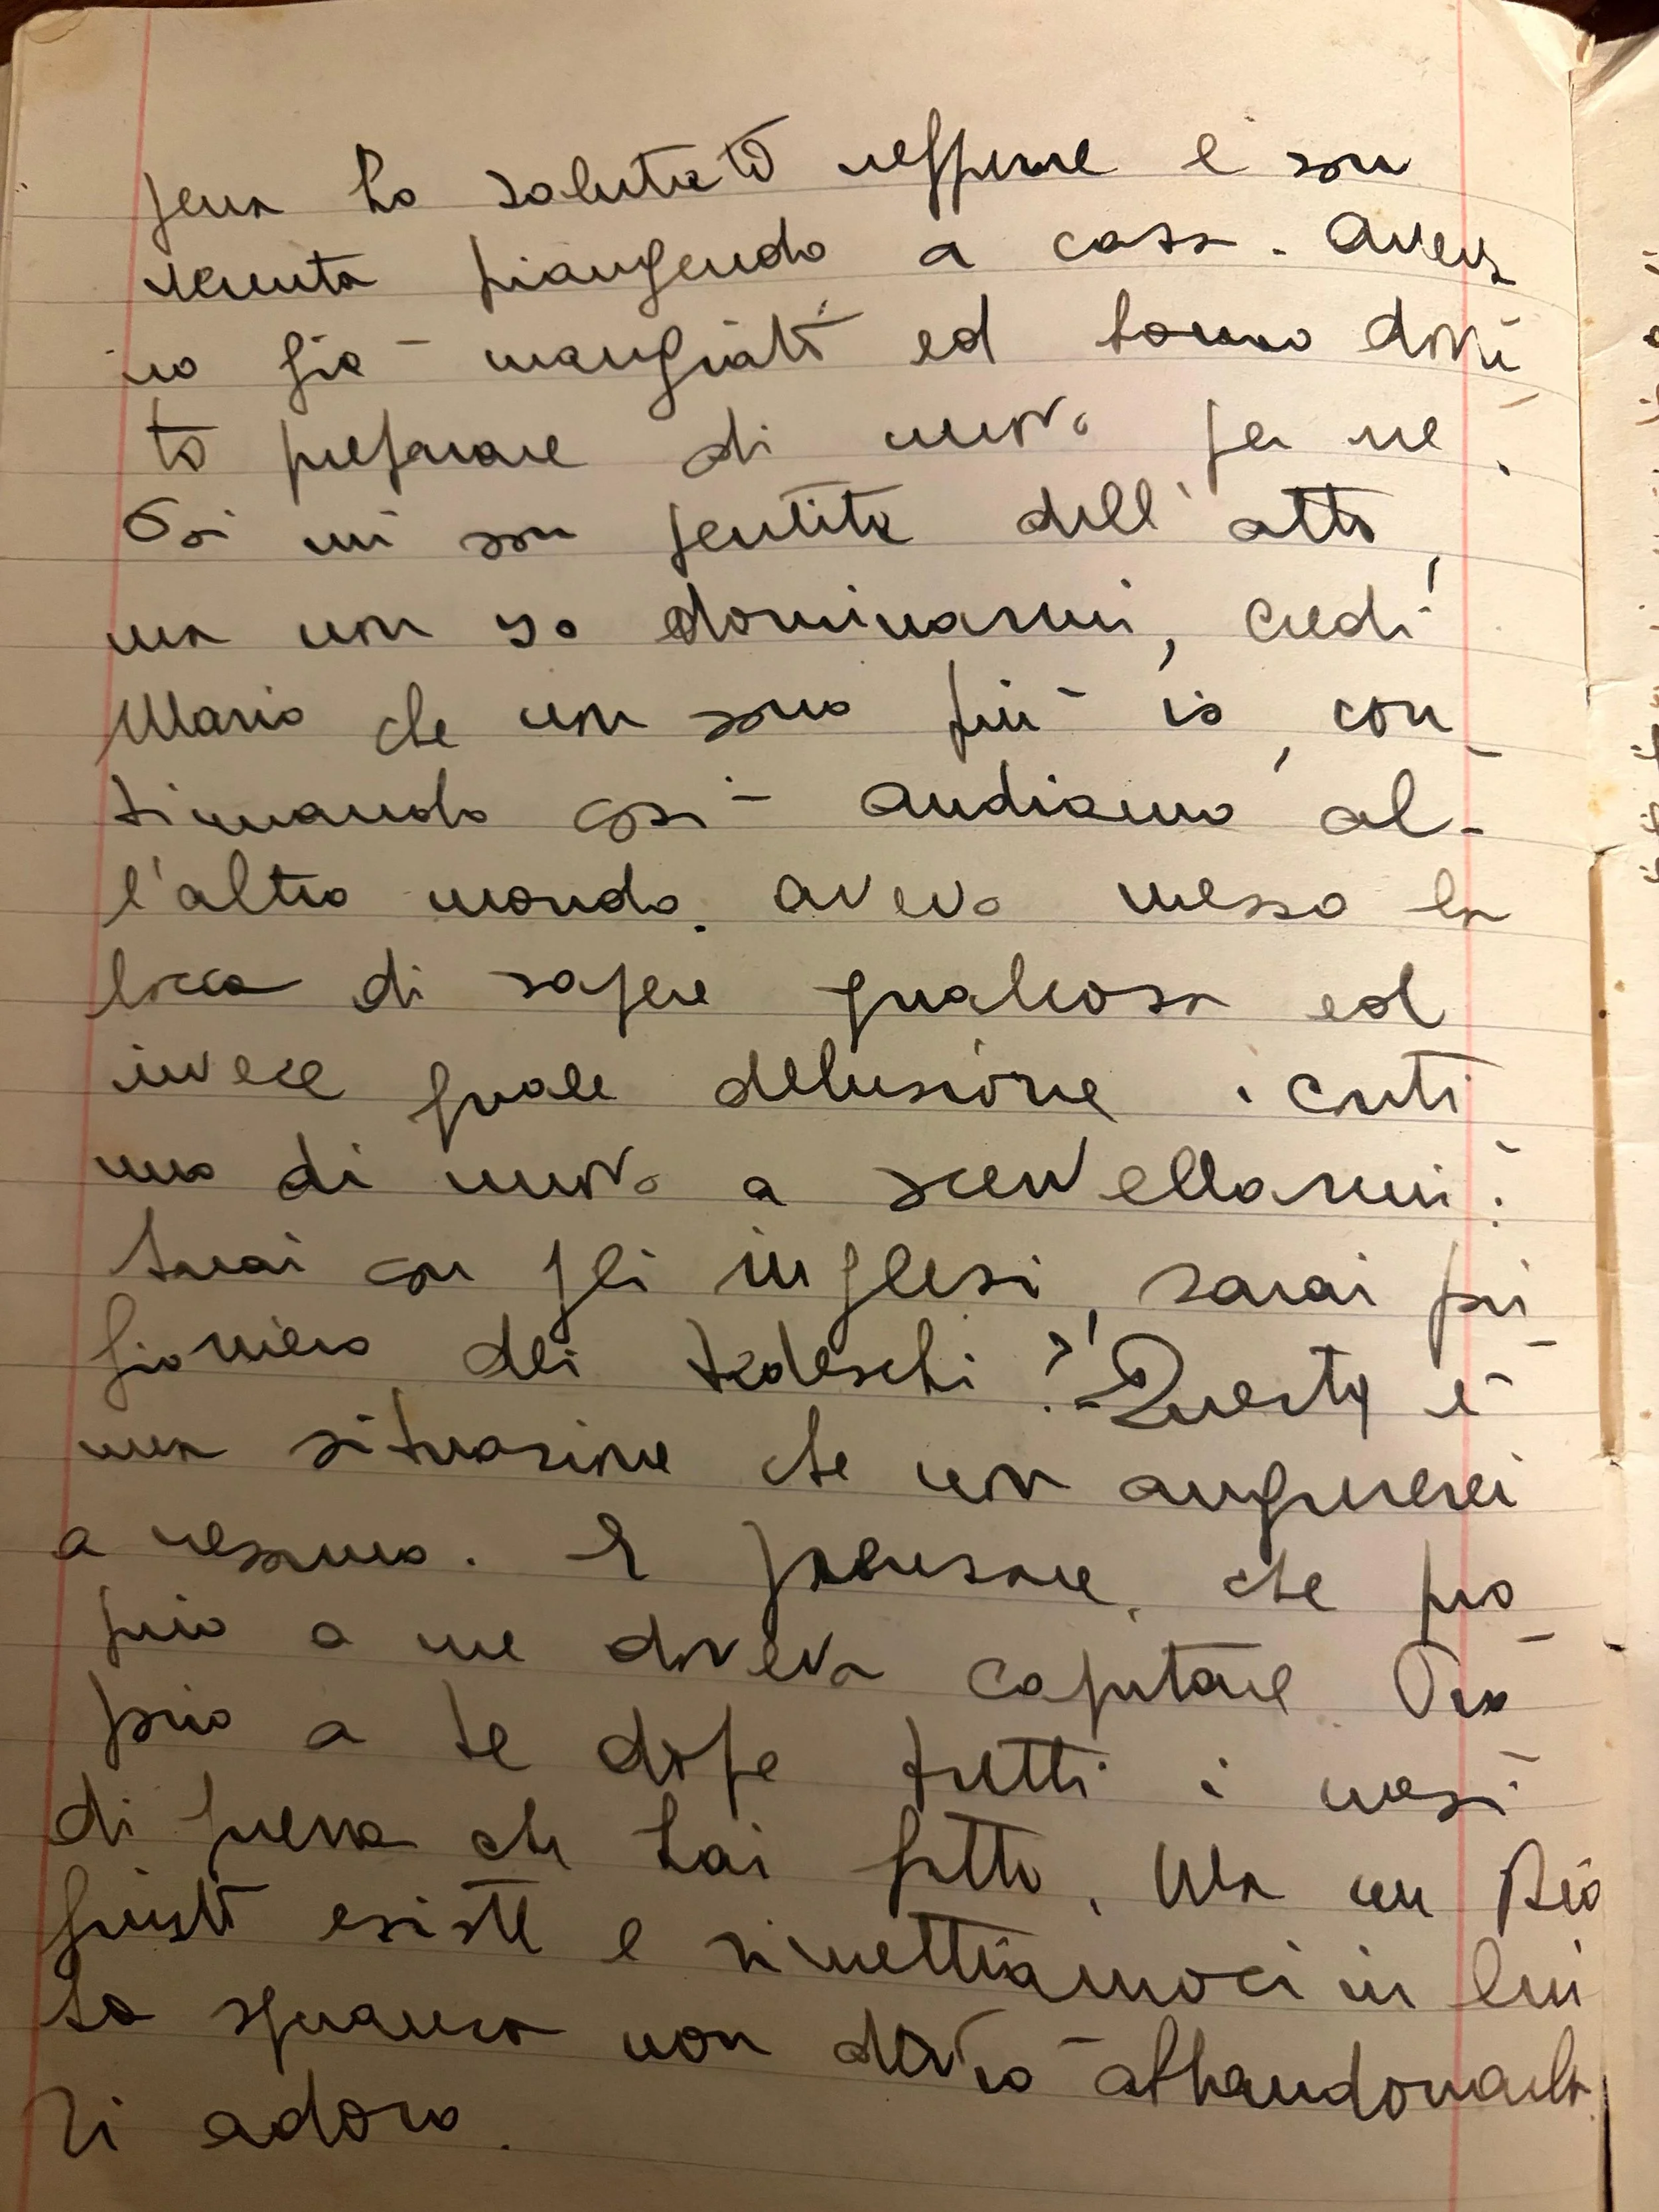 senza ho salutato neppure e son
venuta piangendo a casa. Aveva
no già mangiato ed hanno dovu
to preparare di nuovo per me.
Poi mi son pentita dell'atto,
ma non so dominarmi, credi
Mario che non sono più io, con
tinuando così andiamo al-
l'altro mondo. Avevo messo la
bocca di sapere qualcosa ed
invece quale delusione. Conti
nuo di nuovo a scervellarmi:
Sarai con gli inglesi, sarai pri
gioniero dei tedeschi?! - Questa è
una situazione che non augurerei
a nessuno. E pensare, che pro
prio a me doveva capitare. Pro
prio a te dopo tutti i mesi
di guerra che hai fatto. Ma un Dio
giusto esiste e rimettiamoci in lui
la speranza non devo abbandonarla.
Ti adoro.